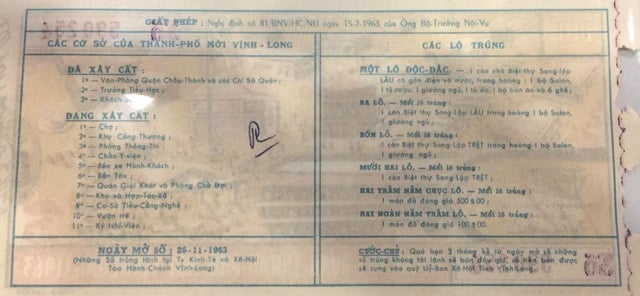 GIẤY PHÉP : Nghị định số 81/BNV/HC/NĐ ngày 15-2-1963 của Ông Bộ-Trưởng Nội-Vụ
CÁC CƠ SỞ CỦA THÀNH-PHỐ MỚI VĨNH-LONG
ĐÃ XÂY CẤT :
1º — Văn-Phòng Quận Châu-Thành và các Chi Sở Quận ;
2º — Trường Tiểu-Học ;
3º — Khách-
ĐANG XÂY CẤT :
1º — Chợ ;
2º — Khu Công-Thương ;
3º — Phòng Thông-Tin ;
4º — Chẩn-Y-viện ;
5º — Bến xe Hành-Khách ;
6º — Bến Tàu ;
7º — Quán Giải Khát và Phòng Chờ Đợi ;
8º — Kho và Hợp-Tác-Xã ;
9º — Cơ-Sở Tiểu-Công-Nghệ ;
10º — Vườn trẻ ;
11º — Ký Nhi-Viện ;
NGÀY MỞ SỐ : 26-11-1963
(Những Số trúng lãnh tại Ty Kinh-Tế và Xã-Hội
Tòa Hành-Chánh Vĩnh-Long)
CÁC LÔ TRÚNG
MỘT LÔ ĐỘC-ĐẮC. — 1 căn nhà Biệt-thự Song-lập
LẦU có gắn điện và nước, trang hoàng : 1 bộ Salon,
1 tủ rượu, 1 giường ngủ, 1 tủ áo, 1 bộ bàn ăn và 6 ghế ;
BA LÔ. — Mỗi lô trúng :
1 căn Biệt-thự Song-Lập LẦU trang hoàng 1 bộ Salon,
1 giường ngủ ;
BỐN LÔ. — Mỗi lô trúng :
1 căn Biệt-thự Song-Lập TRỆT, trang hoàng 1 bộ Salon,
1 giường ngủ ;
MƯỜI HAI LÔ. — Mỗi lô trúng :
1 căn Biệt-thự Song-Lập TRỆT ;
HAI TRĂM NĂM CHỤC LÔ. — Mỗi lô trúng :
1 món đồ đáng giá 500$00 ;
HAI NGÀN NĂM TRĂM LÔ. — Mỗi lô trúng :
1 món đồ đáng giá 100$00.
CƯỚC-CHÚ : Quá hạn 3 tháng kể từ ngày mở số những
số trúng không tới lãnh sẽ bán đấu giá, số tiền bán được
sẽ sung vào quỹ Uỷ-Ban Xã Hội Tỉnh Vĩnh-Long.